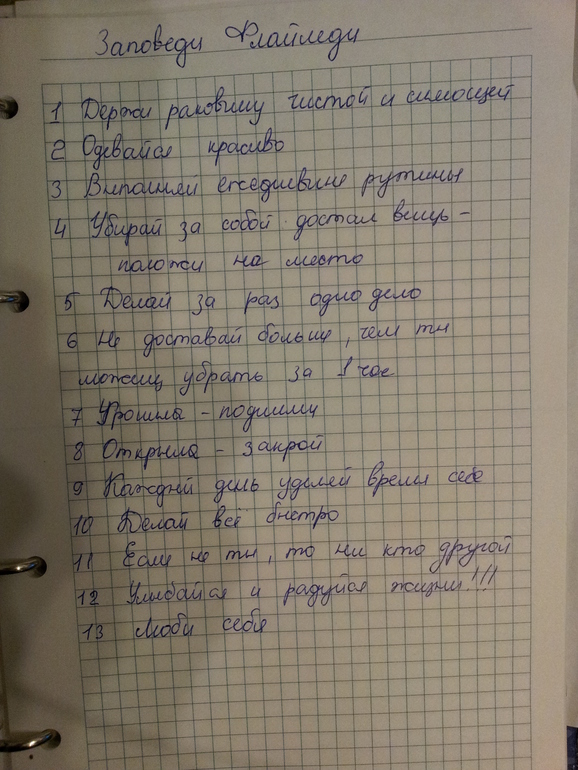 Заповеди Флайледи
1 Держи раковину чистой и сияющей
2 Одевайся красиво
3 Выполняй ежедневные рутины
4 Убирай за собой. достал вещь –
положи на место
5 Делай за раз одно дело
6 Не доставай больше, чем ты
можешь убрать за 1 час
7 Уронила – подними
8 Открыла – закрой
9 Каждый день уделяй время себе
10 Делай всё быстро
11 Если не ты, то ни кто другой
12 Улыбайся и радуйся жизни!!!
13 Люби себя